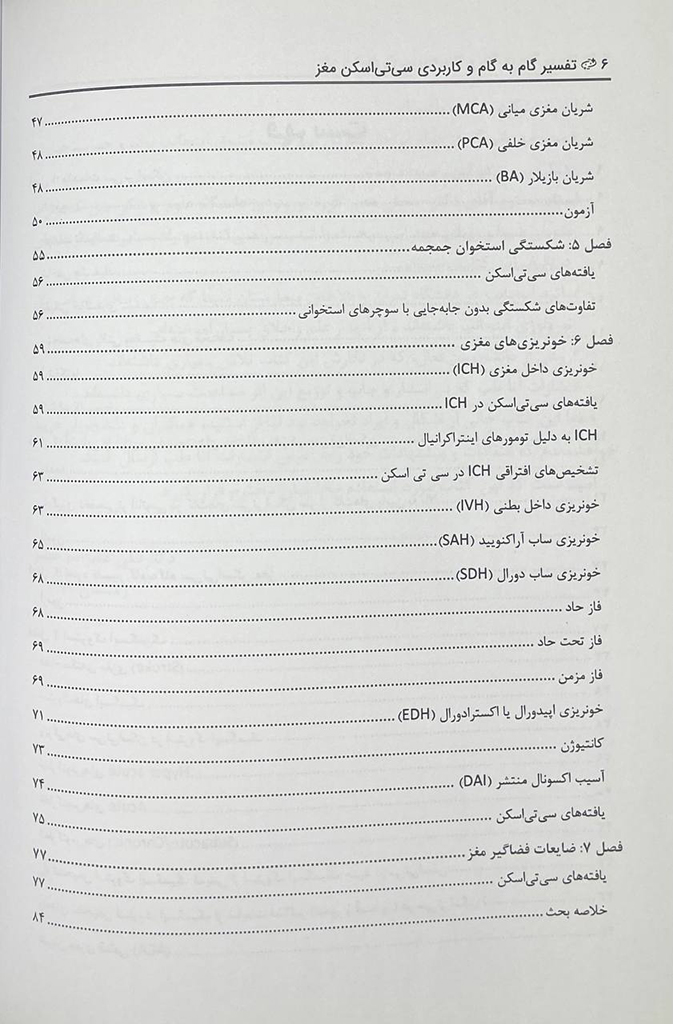 ۶ تفسیر گام به گام و کاربردی سی‌تی‌اسکن مغز
شریان مغزی میانی (MCA) ۴۷
شریان مغزی خلفی (PCA) ۴۸
شریان بازیلار (BA) ۴۸
آزمون ۵۰
فصل ۵: شکستگی استخوان جمجمه ۵۵
یافته‌های سی‌تی‌اسکن ۵۶
تفاوت‌های شکستگی بدون جابه‌جایی با سوچرهای استخوانی ۵۶
فصل ۶: خونریزی‌های مغزی ۵۹
خونریزی داخل مغزی (ICH) ۵۹
یافته‌های سی‌تی‌اسکن در ICH ۵۹
ICH به دلیل تومورهای اینتراکرانیال ۶۱
تشخیص‌های افتراقی ICH در سی تی اسکن ۶۳
خونریزی داخل بطنی (IVH) ۶۳
خونریزی ساب آراکنویید (SAH) ۶۵
خونریزی ساب دورال (SDH) ۶۸
فاز حاد ۶۸
فاز تحت حاد ۶۹
فاز مزمن ۶۹
خونریزی اپیدورال یا اکسترادورال (EDH) ۷۱
کانتیوژن ۷۳
آسیب اکسونال منتشر (DAI) ۷۴
یافته‌های سی‌تی‌اسکن ۷۵
فصل ۷: ضایعات فضاگیر مغز ۷۷
یافته‌های سی‌تی‌اسکن ۷۷
خلاصه بحث ۸۴